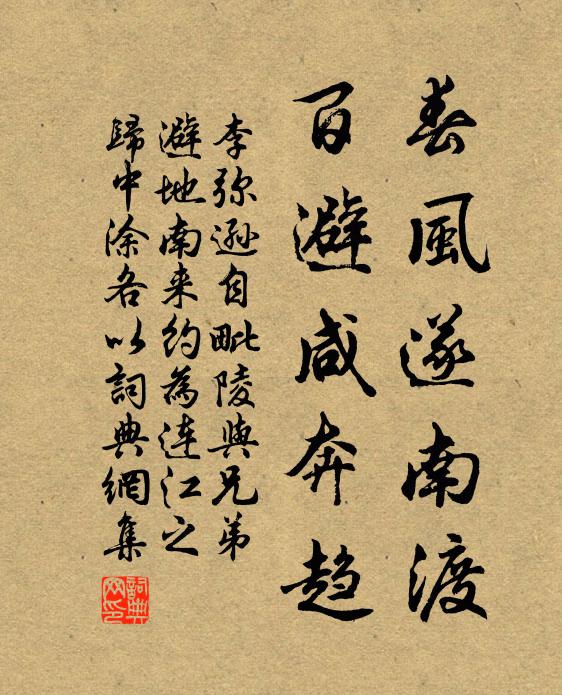 春風遂南渡
百避咸奔趋
李弥遜自毗陵與兄弟
避地南来約為連江之
歸中涂各以詞典網集
詞典网印